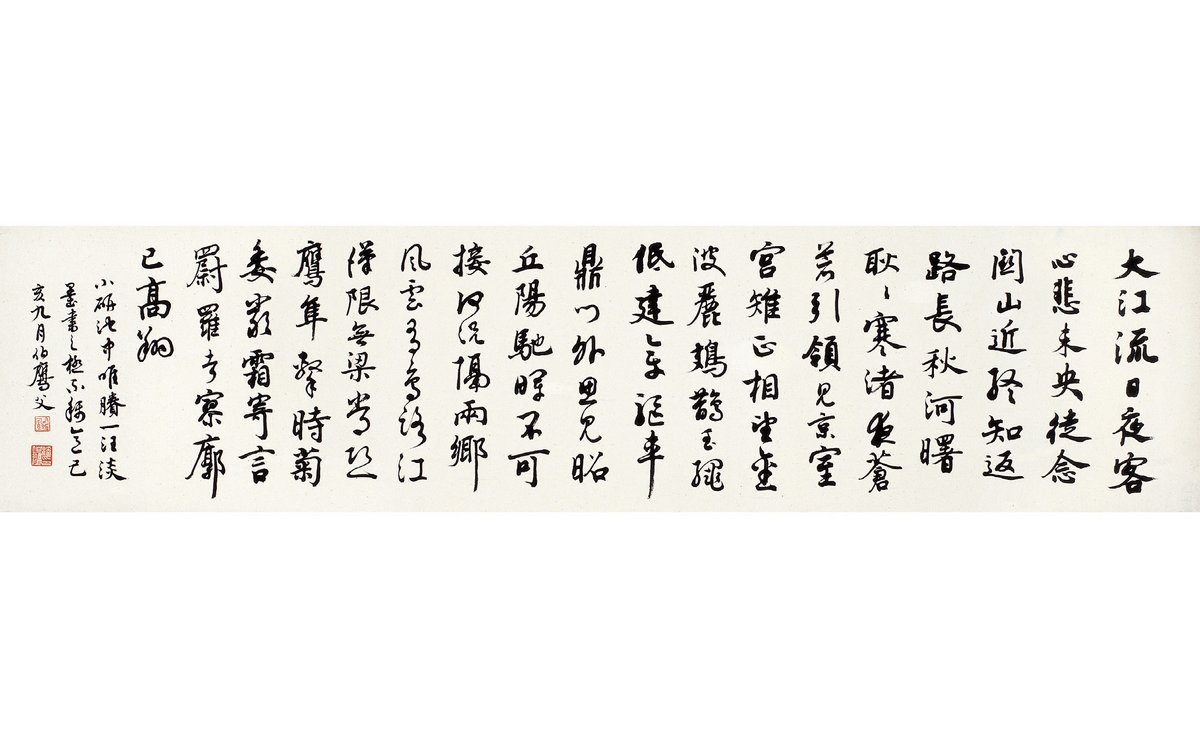 大江流日夜客
心悲未央徒念
關山近終知返
路長秋河曙
耿〻寒渚夜蒼
蒼引領見京室
宮雉正相望金
波麗鳷鵲玉繩
低建章驅車
鼎門外思見昭
丘陽馳暉不可
接何況隔兩鄉
風雲有鳥路江
漢限無梁常恐
鷹隼擊時菊
委嚴霜寄言
罻羅者寥廓
已高翔
小研池中唯賸一汪淡
墨書之極不稱意己
亥九月伯鷹父